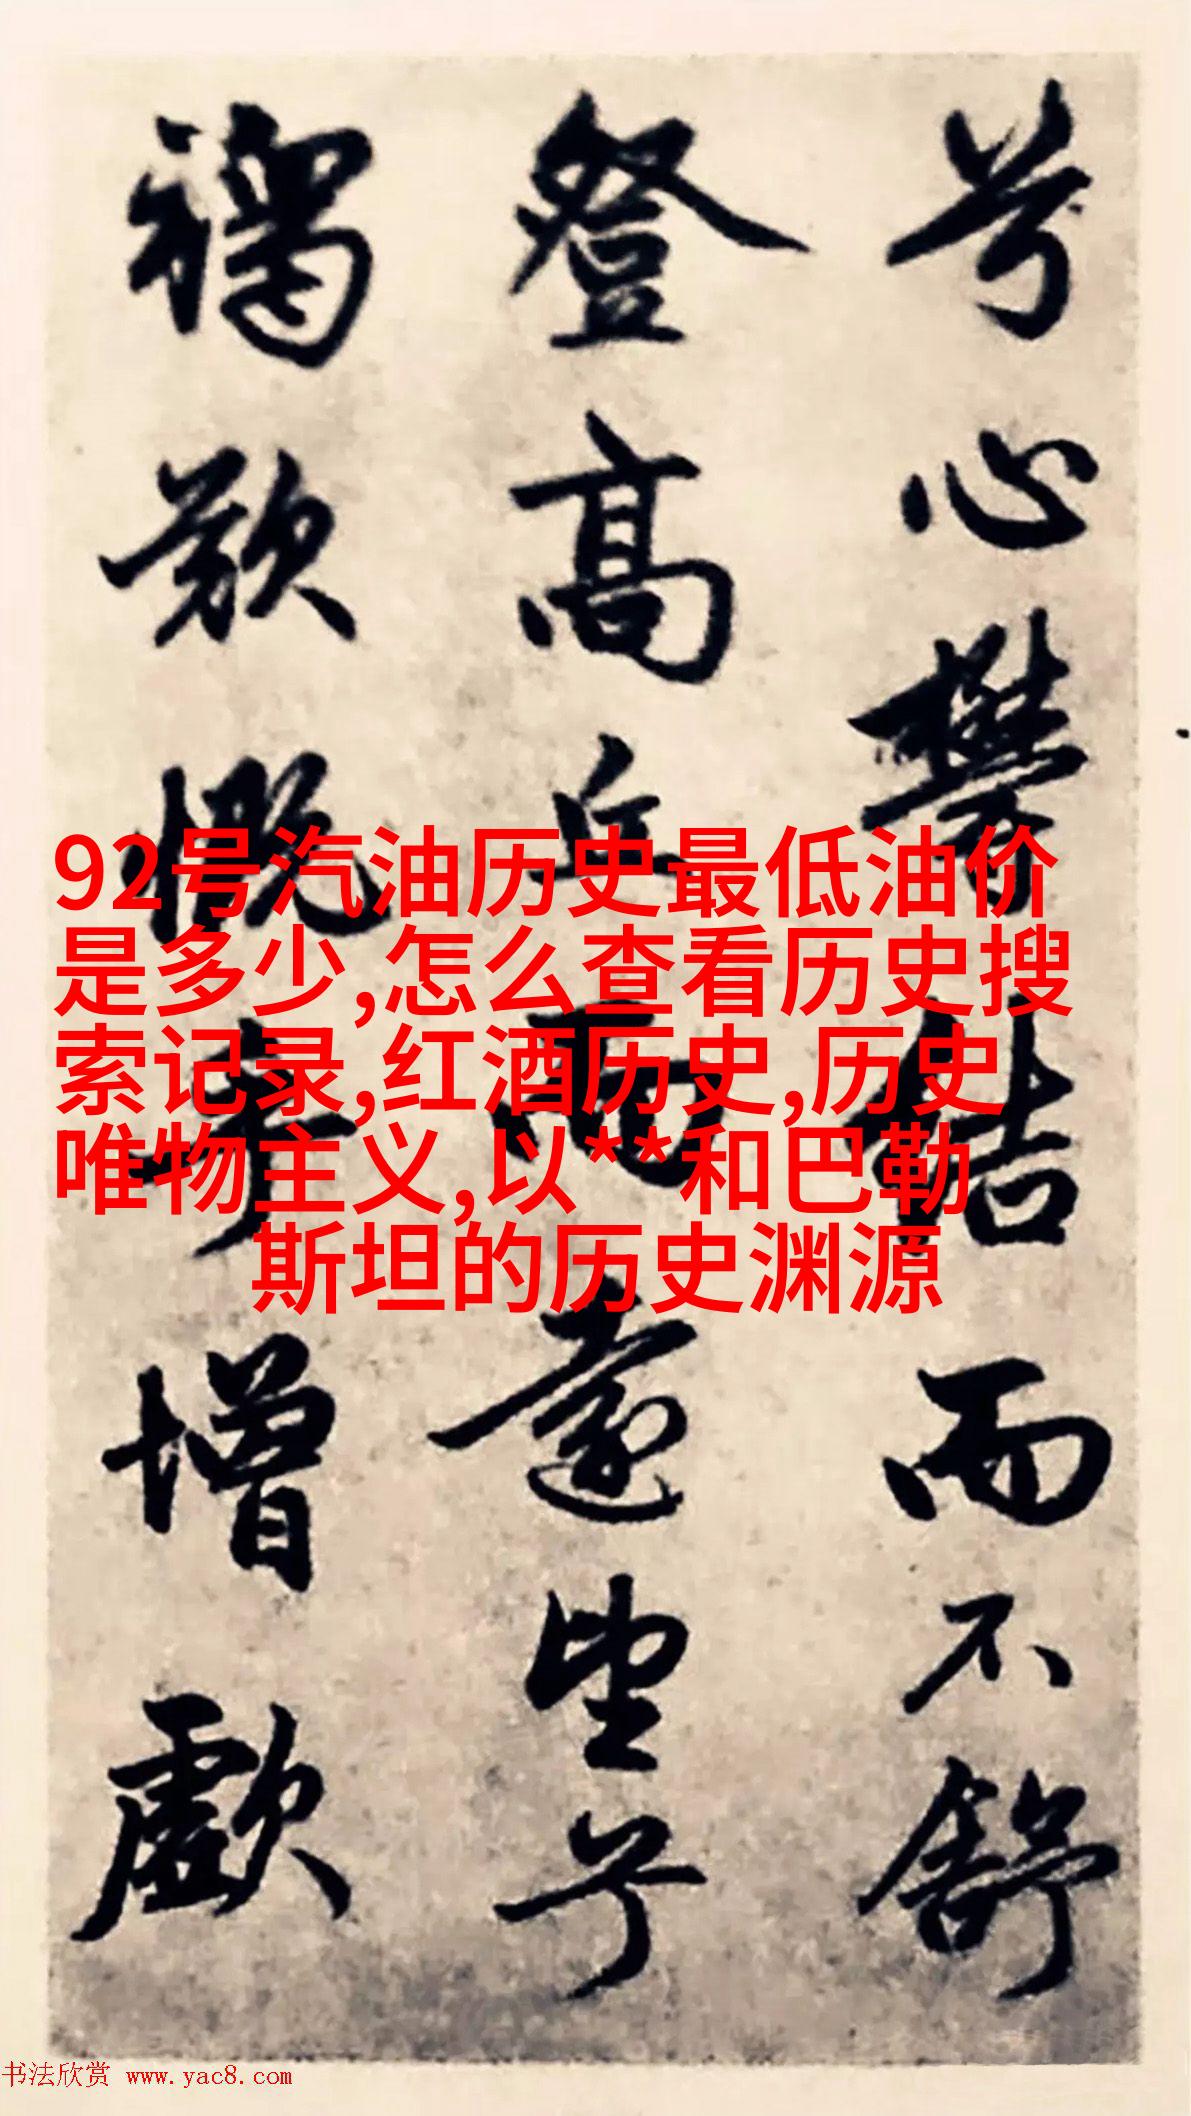 兮心鬱結而不舒
登高丘而遠望兮
歎慨增歔
92号汽油历史最低油价
是多少,怎么查看历史搜
索记录,红酒历史,历史
唯物主义,以**和巴勒
斯坦的历史渊源
书法欣赏 www.yac8.com